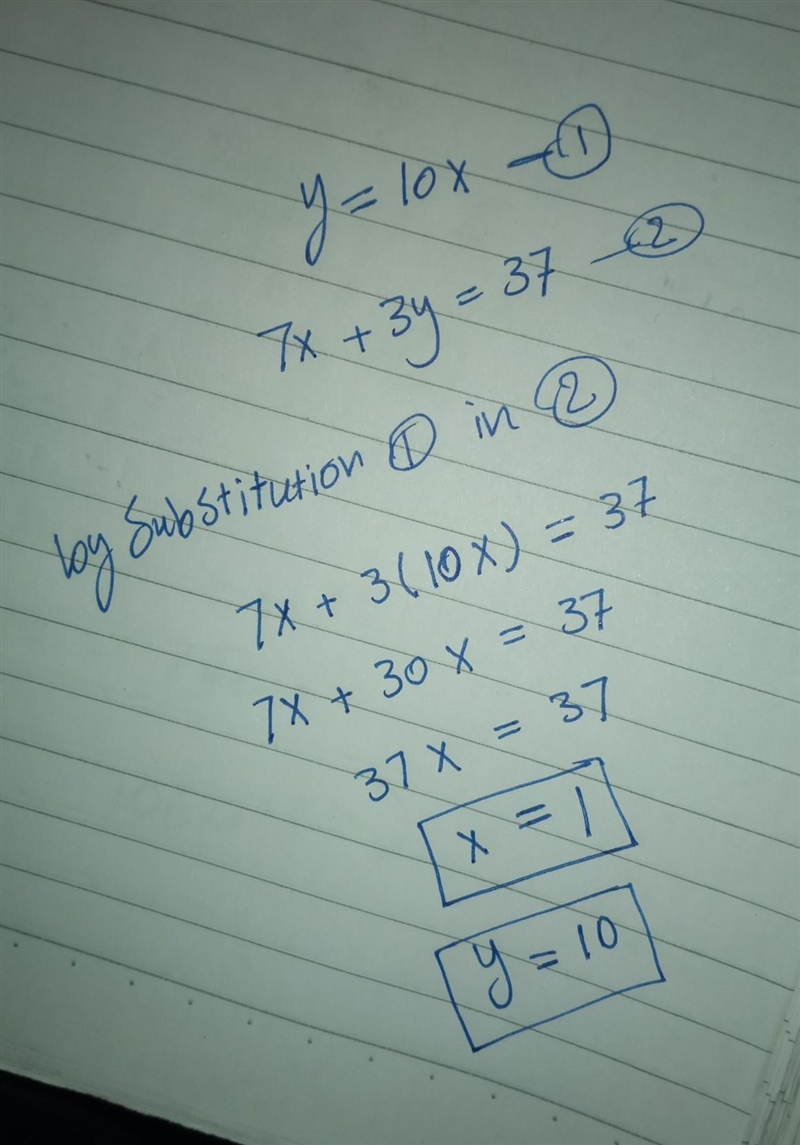 y = 10x – ①
7x + 3y = 37 – ②
by Substitution ① in ②
7x + 3(10x) = 37
7x + 30x = 37
37x = 37
x = 1
y = 10